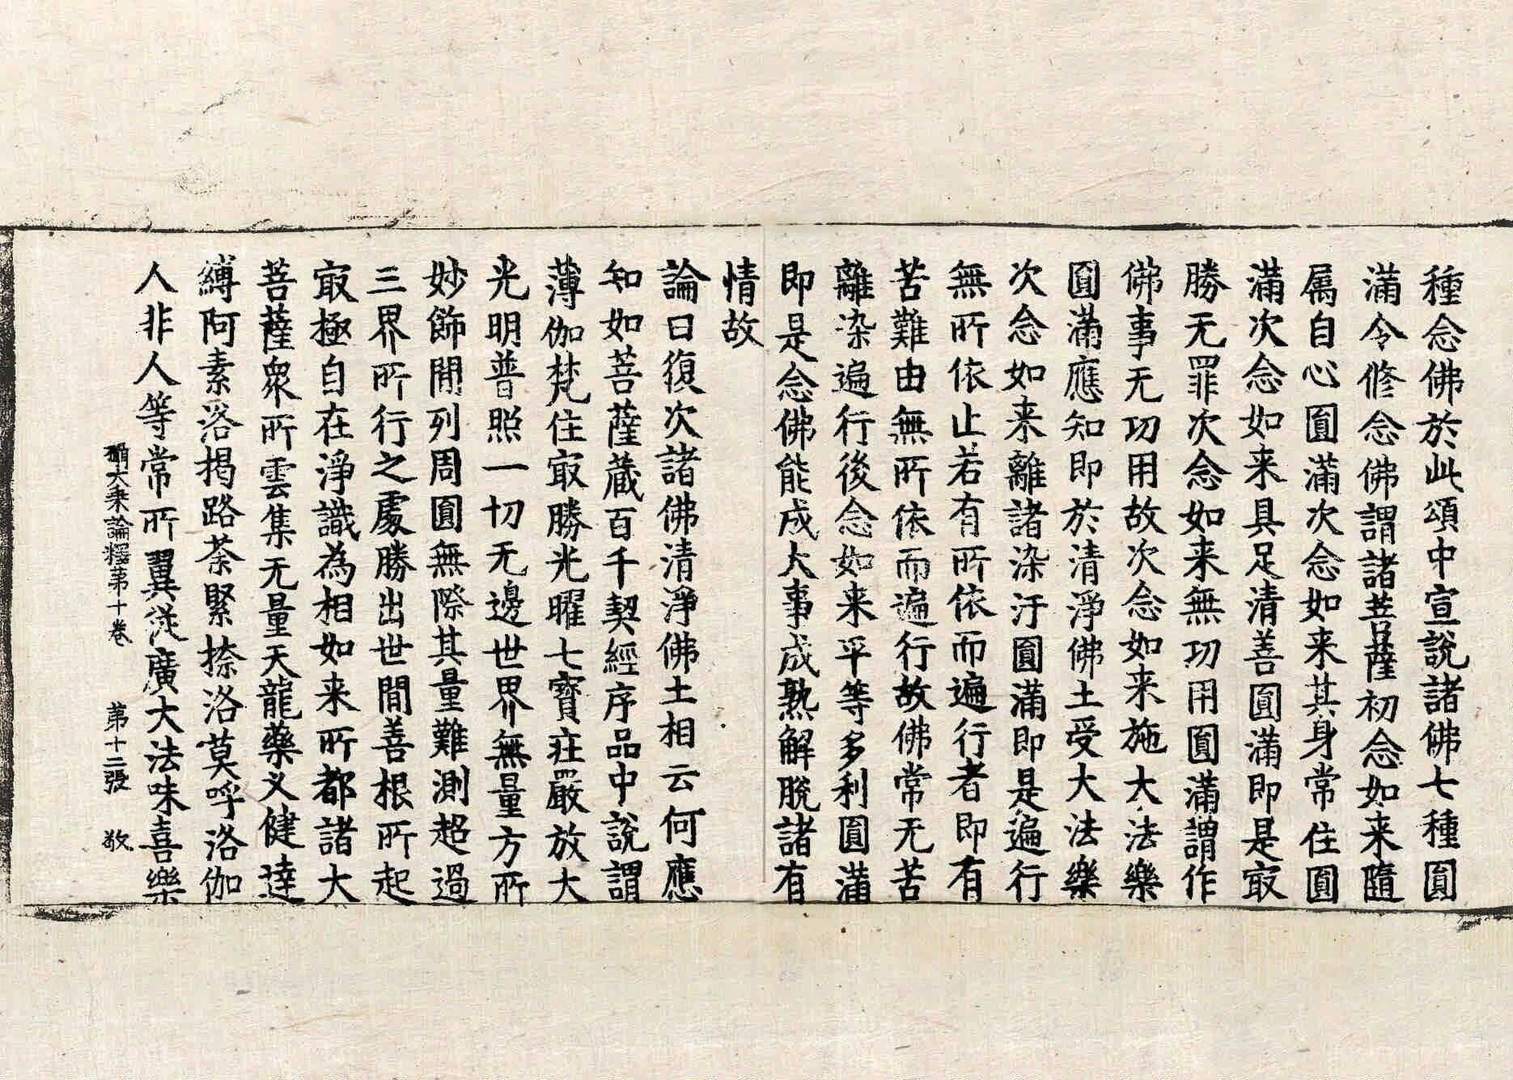 種念佛於此頌中宣說諸佛七種圓
滿令修念佛謂諸菩薩初念如来隨
屬自心圓滿次念如来其身常住圓
滿次念如来具足清善圓滿即是㝡
勝无罪次念如来無功用圓滿謂作
佛事无功用故次念如来施大法樂
圓滿應知即於清淨佛土受大法樂
次念如来離諸染汙圓滿即是遍行
無所依止若有所依而遍行者即有
苦難由無所依而遍行故佛常无苦
離染遍行後念如来平等多利圓滿
即是念佛能成大事成熟解脫諸有
情故
論曰復次諸佛清淨佛土相云何應
知如菩薩藏百千契經序品中說謂
薄伽梵住㝡勝光曜七寶莊嚴放大
光明普照一切无邊世界無量方所
妙飾間列周圓無際其量難測超過
三界所行之處勝出世間善根所起
㝡極自在淨識為相如来所都諸大
菩薩衆所雲集无量天龍藥叉健達
縛阿素洛揭路荼緊捺洛莫呼洛伽
人非人等常所翼從廣大法味喜樂
攝大乘論釋第十卷 第十二張 敬